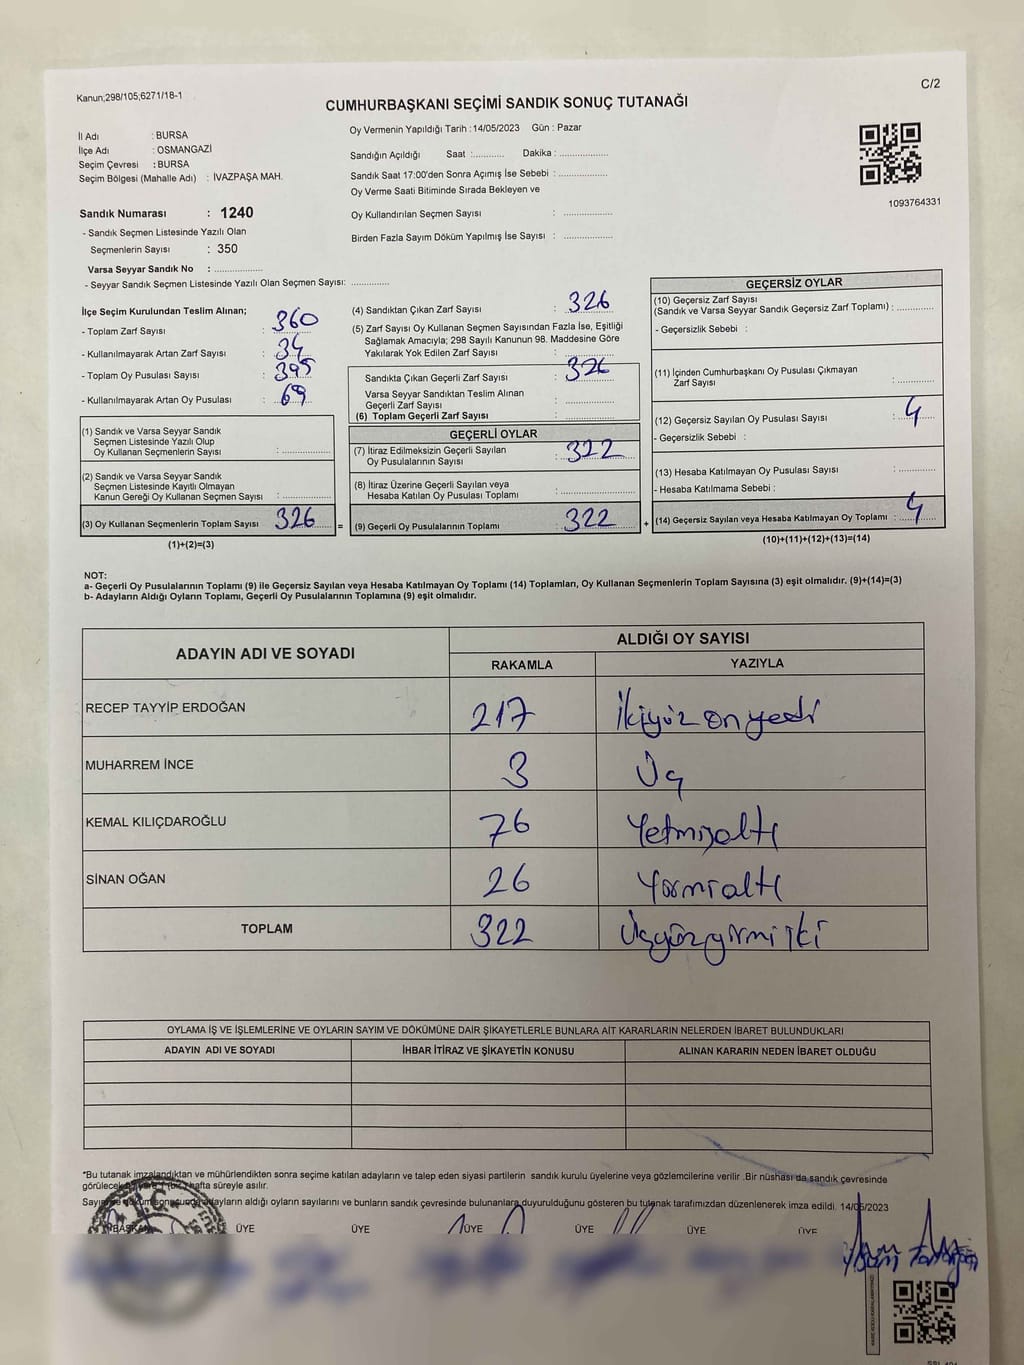 Kanun;298/105;6271/18-1
C/2
CUMHURBAŞKANI SEÇİMİ SANDIK SONUÇ TUTANAĞI
İl Adı : BURSA
İlçe Adı : OSMANGAZİ
Seçim Çevresi : BURSA
Seçim Bölgesi (Mahalle Adı) : İVAZPAŞA MAH.
Sandık Numarası : 1240
- Sandık Seçmen Listesinde Yazılı Olan
Seçmenlerin Sayısı : 350
Varsa Seyyar Sandık No : ................
- Seyyar Sandık Seçmen Listesinde Yazılı Olan Seçmen Sayısı: .............
Oy Vermenin Yapıldığı Tarih : 14/05/2023 Gün : Pazar
Sandığın Açıldığı Saat :........... Dakika : ................
Sandık Saat 17:00'den Sonra Açımış İse Sebebi : ................
Oy Verme Saati Bitiminde Sırada Bekleyen ve
Oy Kullandırılan Seçmen Sayısı : ................
Birden Fazla Sayım Döküm Yapılmış İse Sayısı : ................
1093764331
İlçe Seçim Kurulundan Teslim Alınan;
- Toplam Zarf Sayısı : 360
- Kullanılmayarak Artan Zarf Sayısı : 34
- Toplam Oy Pusulası Sayısı : 395
- Kullanılmayarak Artan Oy Pusulası : 69
(1) Sandık ve Varsa Seyyar Sandık
Seçmen Listesinde Yazılı Olup
Oy Kullanan Seçmenlerin Sayısı : ................
(2) Sandık ve Varsa Seyyar Sandık
Seçmen Listesinde Kayıtlı Olmayan
Kanun Gereği Oy Kullanan Seçmen Sayısı : ................
(3) Oy Kullanan Seçmenlerin Toplam Sayısı : 326 =
(1)+(2)=(3)
(4) Sandıktan Çıkan Zarf Sayısı : 326
(5) Zarf Sayısı Oy Kullanan Seçmen Sayısından Fazla İse, Eşitliği
Sağlamak Amacıyla; 298 Sayılı Kanunun 98. Maddesine Göre
Yakılarak Yok Edilen Zarf Sayısı : ................
Sandıkta Çıkan Geçerli Zarf Sayısı : 326
Varsa Seyyar Sandıktan Teslim Alınan
Geçerli Zarf Sayısı : ................
(6) Toplam Geçerli Zarf Sayısı : ................
GEÇERLİ OYLAR
(7) İtiraz Edilmeksizin Geçerli Sayılan
Oy Pusulalarının Sayısı : 322
(8) İtiraz Üzerine Geçerli Sayılan veya
Hesaba Katılan Oy Pusulası Toplamı : ................
(9) Geçerli Oy Pusulalarının Toplamı : 322 +
GEÇERSİZ OYLAR
(10) Geçersiz Zarf Sayısı
(Sandık ve Varsa Seyyar Sandık Geçersiz Zarf Toplamı) : ............
- Geçersizlik Sebebi :
(11) İçinden Cumhurbaşkanı Oy Pusulası Çıkmayan
Zarf Sayısı : ............
(12) Geçersiz Sayılan Oy Pusulası Sayısı : 4
- Geçersizlik Sebebi :
(13) Hesaba Katılmayan Oy Pusulası Sayısı : ............
- Hesaba Katılmama Sebebi :
(14) Geçersiz Sayılan veya Hesaba Katılmayan Oy Toplamı : 4
(10)+(11)+(12)+(13)=(14)
NOT:
a- Geçerli Oy Pusulalarının Toplamı (9) ile Geçersiz Sayılan veya Hesaba Katılmayan Oy Toplamı (14) Toplamları, Oy Kullanan Seçmenlerin Toplam Sayısına (3) eşit olmalıdır. (9)+(14)=(3)
b- Adayların Aldığı Oyların Toplamı, Geçerli Oy Pusulalarının Toplamına (9) eşit olmalıdır.
ADAYIN ADI VE SOYADI
ALDIĞI OY SAYISI
RAKAMLA YAZIYLA
RECEP TAYYİP ERDOĞAN 217 İkiyüz on yedi
MUHARREM İNCE 3 Üç
KEMAL KILIÇDAROĞLU 76 Yetmişaltı
SİNAN OĞAN 26 Yirmialtı
TOPLAM 322 Üçyüzyirmi iki
OYLAMA İŞ VE İŞLEMLERİNE VE OYLARIN SAYIM VE DÖKÜMÜNE DAİR ŞİKAYETLERLE BUNLARA AİT KARARLARIN NELERDEN İBARET BULUNDUKLARI
ADAYIN ADI VE SOYADI İHBAR İTİRAZ VE ŞİKAYETİN KONUSU ALINAN KARARIN NEDEN İBARET OLDUĞU
*Bu tutanak imzalandıktan ve mühürlendikten sonra seçime katılan adayların ve talep eden siyasi partilerin sandık kurulu üyelerine veya gözlemcilerine verilir .Bir nüshası da sandık çevresinde
görülecek hafta süreyle asılır.
adayların aldığı oyların sayılarını ve bunların sandık çevresinde bulunanlara duyurulduğunu gösteren bu tutanak tarafımızdan düzenlenerek imza edildi. 14/05/2023
BAŞKAN ÜYE ÜYE ÜYE ÜYE ÜYE